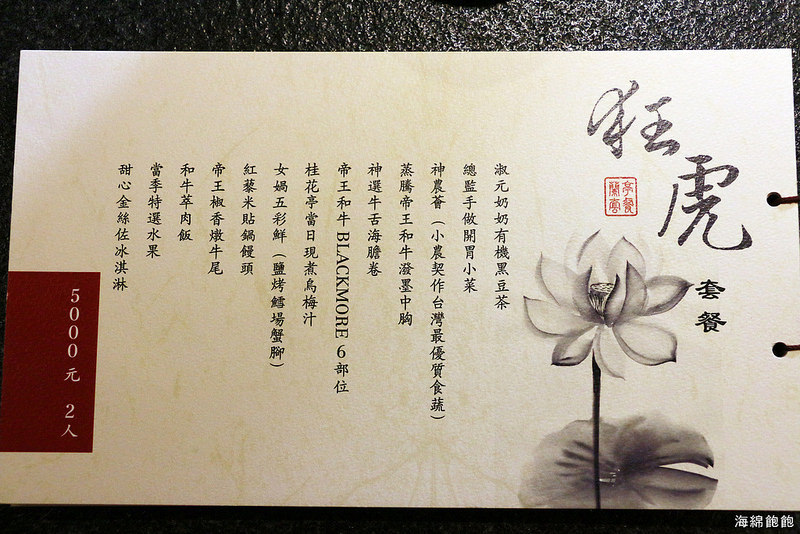 狂虎
套餐
淑元奶奶有機黑豆茶
總監手做開胃小菜
神農薈（小農契作台灣最優質食蔬）
蒸騰帝王和牛潑墨中胸
神選牛舌海膽卷
帝王和牛BLACKMORE 6部位
桂花亭當日現煮烏梅汁
女媧五彩鮮（鹽烤鱈場蟹腳）
紅藜米貼鍋饅頭
帝王椒香燉牛尾
和牛萃肉飯
當季特選水果
甜心金絲佐冰淇淋
5000元 2人
海綿飽飽